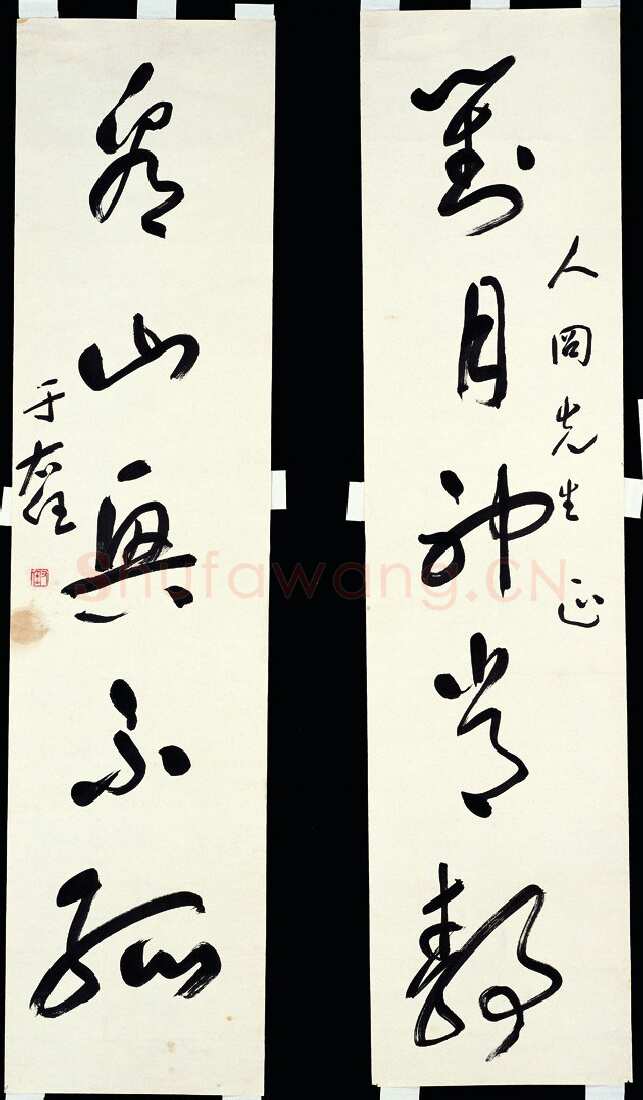 對月神常靜
人岡先生 正
看山興不孤
于右任
Shufawang.CN